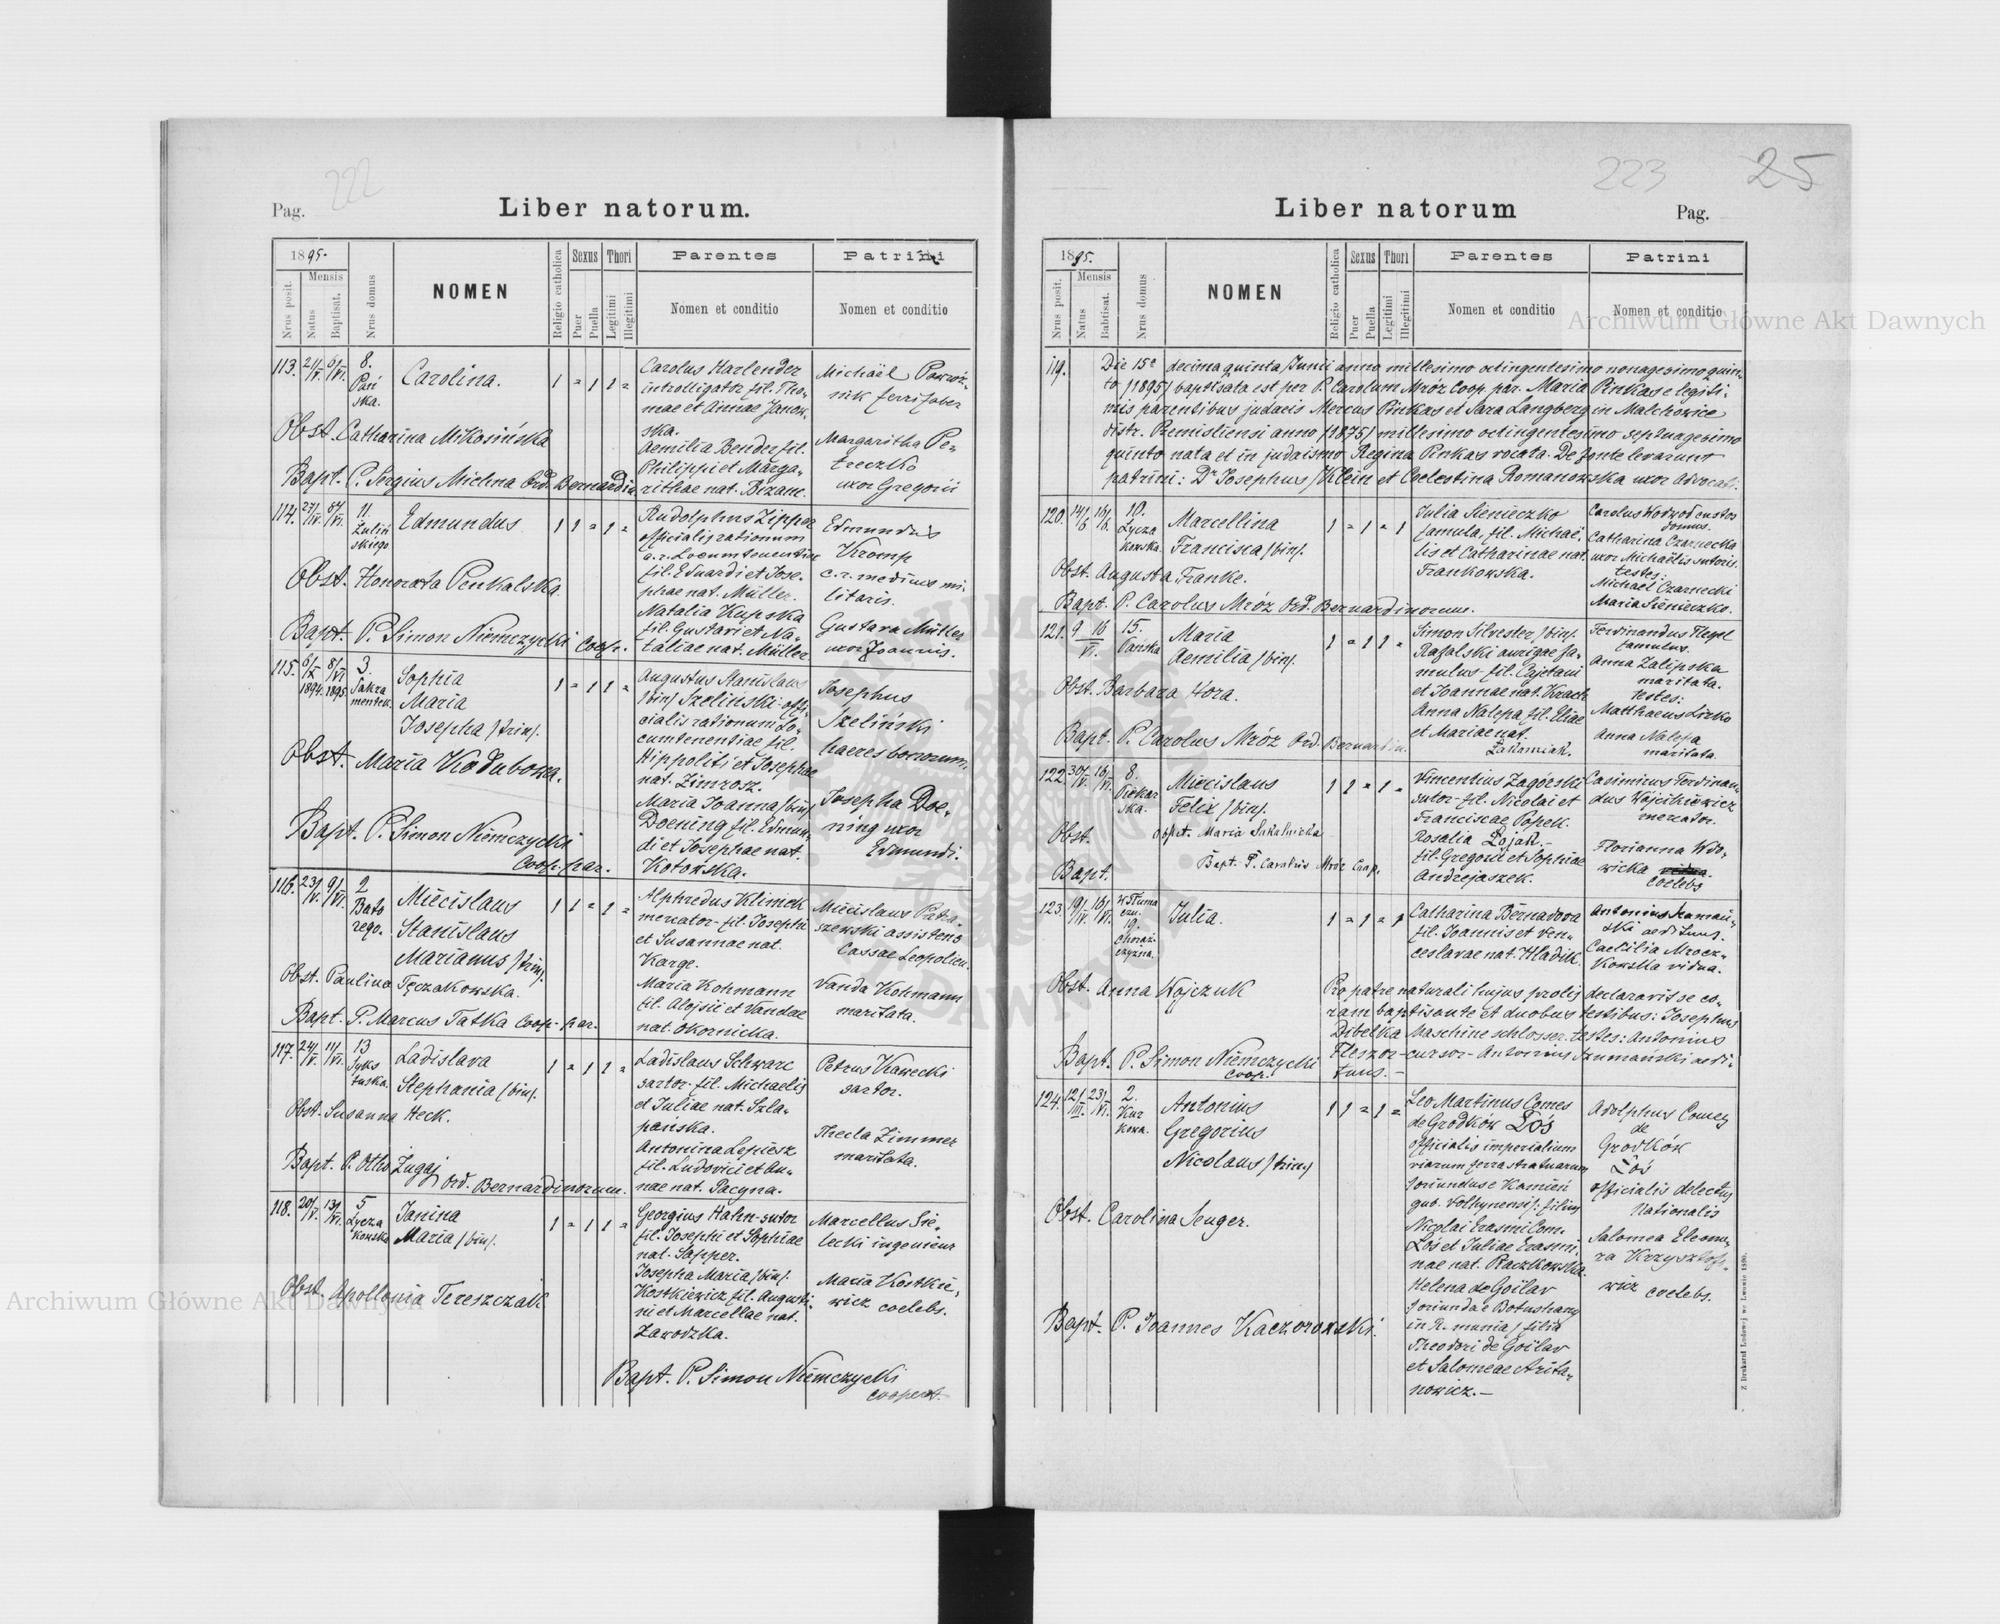 222
Pag.
Liber natorum.
1895.
Nrus posit.
Mensis
Natus
Baptisat.
Nrus domus
NOMEN
Religio catholica
Sexus
Puer
Puella
Thori
Legitimi
Illegitimi
Parentes
Nomen et conditio
Patrini
Nomen et conditio
113. 8. Carolina. 1 = 1 1 =
Pań
ska.
Obst. Catharina Mikosińska
Bapt. P. Sergius Michna Ord. Bernardin.
Carolus Harlender
introlligator fil. Tho-
mae et Annae Janow
ska.
Aemilia Bender fil.
Philippi et Marga-
rithae nat. Bizanc.
Michaël Powróź-
nik ferrifaber
Margaritha Pe-
treczko
uxor Gregorii
114. 11. Edmundus 1 1 = 1 =
Zuliń
skiego
Obst. Honorata Penkalska.
Bapt. P. Simon Niemczycki Coop.
Rudolphus Zipper
officialis rationum
c. r. Locumtenentiae
fil. Eduardi et Jose-
phae nat. Müller.
Natalia Kupska
fil. Gustavi et Na-
taliae nat. Müller
Edmundus
Kromp
c. r. medicus mi-
litaris.
Gustava Müller
uxor Joannis.
115. 6/X 1894. 8/VI 1895 3.
Sakra
mentek.
Sophia
Maria
Josepha /trin/. 1 = 1 1 =
Obst. Maria Kadubowa.
Bapt. P. Simon Niemczycki
Coop. par.
Augustus Stanislaus
/bin/ Szeliński offi-
cialis rationum Lo-
cumtenentiae fil.
Hippoliti et Josephae
nat. Zimrosz.
Maria Joanna /bin/
Doening fil. Edmun
di et Josephae nat.
Kotowska.
Josephus
Szeliński
haeres bonorum.
Josepha Doe-
ning uxor
Edmundi.
116. 23/V. 9/VI. 2
Bato
rego.
Miecislaus
Stanislaus
Marianus /trin/. 1 1 = 1 =
Obst. Paulina Tęczakowska.
Bapt. P. Marcus Tatka Coop. par.
Alphredus Klimek
mercator fil. Josephi
et Susannae nat.
Karge.
Maria Kohmann
fil. Aloisii et Vandae
nat. Okornicka.
Miecislaus Patra
szewski assistens
Cassae Leopolien.
Vanda Kohmann
maritata.
117. 24/V. 11/VI. 13
Syks
tuska.
Ladislava
Stephania /bin/. 1 = 1 1 =
Obst. Susanna Heck.
Bapt. P. Otho Zugaj Ord. Bernardinorum.
Ladislaus Schwarc
sartor fil. Michaelis
et Juliae nat. Szla-
pańska.
Antonina Lepiesz
fil. Ludovici et An-
nae nat. Pacyna.
Petrus Kawecki
sartor.
Thecla Zimmer
maritata.
118. 20/V. 13/VI. 5
Łycza
kowska
Janina
Maria /bin/. 1 = 1 1 =
Obst. Apollonia Tereszczak
Georgius Hahn sutor
fil. Josephi et Sophiae
nat. Sapper.
Josepha Maria /bin/.
Kostkiewicz fil. Augusti-
ni et Marcellae nat.
Zawodzka.
Marcellus Sie-
lecki ingenieur
Maria Kostkie-
wicz coelebs.
Bapt. P. Simon Niemczycki
cooperat.
223 25
Liber natorum
Pag.
1895.
Nrus posit.
Mensis
Natus
Babtisat.
Nrus domus
NOMEN
Religio catholica
Sexus
Puer
Puella
Thori
Legitimi
Illegitimi
Parentes
Nomen et conditio
Patrini
Nomen et conditio
119. Die 15a decima quinta Junii anno millesimo octingentesimo nonagesimo quin-
to /1895/ baptisata est per P. Carolum Mróz Coop. par. Maria Pinkas e legiti-
mis parentibus judaeis Mercus Pinkas et Sara Langberg in Malchowice
distr. Premisliensi anno /1875/ millesimo octingentesimo septuagesimo
quinto nata et in judaismo Regina Pinkas vocata. De fonte levarunt
patrini: Dr Josephus Klein et Coelestina Romanowska uxor advocati.
120. 14/6 16/6. 10.
Łycza
kowska
Marcellina
Francisca /bin/. 1 = 1 = 1
Obst. Augusta Franke.
Bapt. P. Carolus Mróz Ord. Bernardinorum.
Julia Sienieczko
famula, fil. Michaë-
lis et Catharinae nat.
Frankowska.
Carolus Wodwod custos
domus.
Catharina Czarnecka
uxor Michaëlis sutoris.
testes:
Michaël Czarnecki
Maria Sienieczko.
121. 9 16 VI. 15.
Pańska
Maria
Aemilia /bin/. 1 = 1 1 =
Obst. Barbara Hora.
Bapt. P. Carolus Mróz Ord. Bernardin.
Simon Silvester /bin/.
Rafalski aurigae fa-
mulus fil. Cajetani
et Joannae nat. Krach
Anna Nalepa fil. Eliae
et Mariae nat.
Łakomiak.
Ferdinandus Flegel
famulus.
Anna Zalipska
maritata.
testes:
Matthaeus Lizko
Anna Nalepa
maritata.
122. 30/IV. 16/VI. 8.
Piekar
ska.
Miecislaus
Felix /bin/. 1 1 = 1 =
Obst. Maria Sakalnicka
Bapt. Bapt. P. Carolus Mróz Coop.
Vincentius Zagórski
sutor fil. Nicolai et
Franciscae Popek.
Rosalia Łojak.
fil. Gregorii et Sophiae
Andrejaszek.
Casimirus Ferdinan-
dus Wojcikiewicz
mercator.
Florianna Wdo-
wicka
coelebs
123. 19/IV. 16/VI. 19.
Chorąż-
czyzna.
Julia. 1 = 1 = 1
Obst. Anna Wojczuk
Bapt. P. Simon Niemczycki
Coop.
Catharina Bernadova
fil. Joannis et Ven-
ceslavae nat. Hladik.
Antonius Szumań-
ski aedituus.
Caecilia Mrocz-
kowska vidua.
Pro patre naturali hujus prolis declaravit se co-
ram baptisante et duobus testibus: Josephus
Dibelka Maschinschlosser. testes: Antonius
Fleszor cursor Antonius Szumański aedi-
tuus.
124. 12/III. 23/VI. 2.
Kur
kowa.
Antonius
Gregorius
Nicolaus /trin/ 1 1 = 1 =
Obst. Carolina Senger.
Bapt. P. Joannes Kaczorowski.
Leo Martinus Comes
de Grodków Łoś
officialis imperialium
viarum ferrastratuarum
/oriundus e Kamień
gub. Volhynensi/: filius
Nicolai Erasmi Com.
Łoś et Juliae Erasmi-
nae nat. Raczkowska.
Helena de Goilav
/oriunda e Botushany
in Rumunia/ filia
Theodori de Goilav
et Salomeae Arita-
nowicz.
Adolphus Comes
de
Grodków
Łoś
officialis delectus
Nationalis
Salomea Eleono-
ra Krzysztofo-
wicz coelebs.
Z Drukarni Ludowej we Lwowie 1890.
Archiwum Główne Akt Dawnych
Archiwum Główne Akt Dawnych